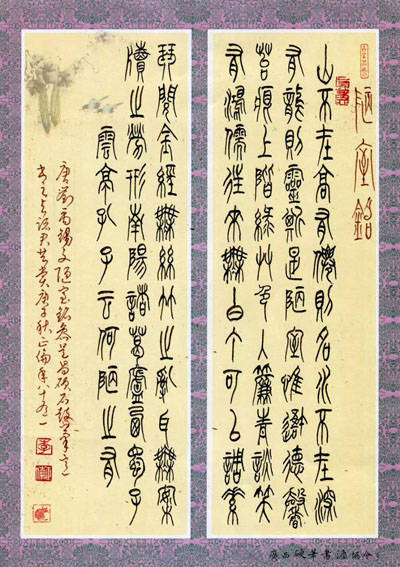 陋室銘
山不在高有僊則名水不在深
有龍則靈斯是陋室惟吾德馨
苔痕上階綠艸色入簾青談笑
有鴻儒往來無白丁可以調素
琴閱金經無絲竹之亂耳無案
牘之勞形南陽諸葛廬西蜀子
雲亭孔子云何陋之有
唐劉禹錫文陋室銘
庚子秋
廣西硬筆書法協會